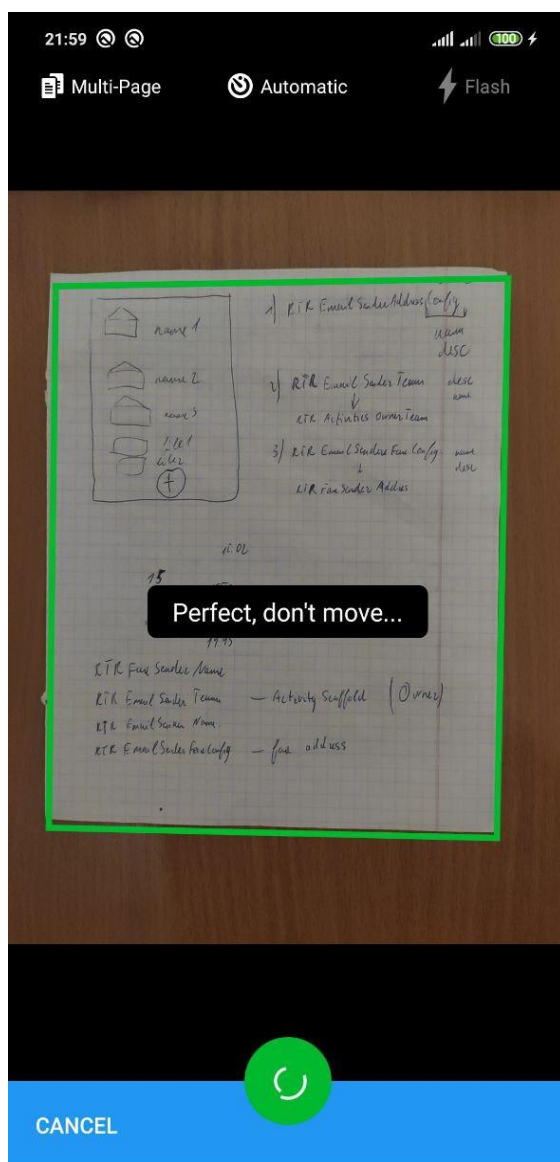 21:59
100
Multi-Page
Automatic
Flash
name 1
name 2
name 3
1) RTR Email Sender Address Config
name
desc
2) RTR Email Sender Team
desc
name
RTR Activities Owner Team
3) RTR Email Sender Fax Config
name
desc
RTR Fax Sender Addres
15
Perfect, don't move...
RTR Fax Sender Name
RTR Email Sender Team — Activity Scaffold (Owner)
RTR Email Sender Name
RTR Email Sender Fax Config — fax address
CANCEL